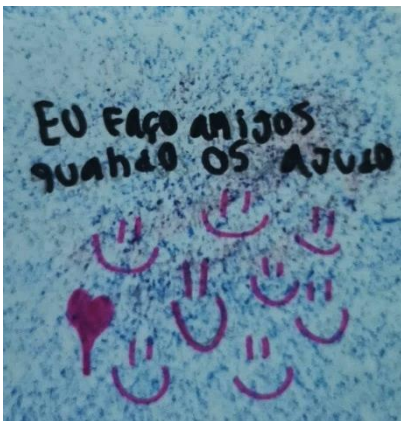 EU FAÇO AMIGOS
QUANDO OS AJUDO